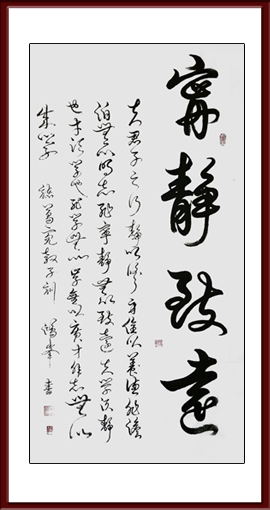 寧靜致遠
夫君子之行靜以修身儉以養德非澹
泊無以明志非寧靜無以致遠夫學須靜
也才須學也非學無以廣才非志無以
成學
葛亮
書